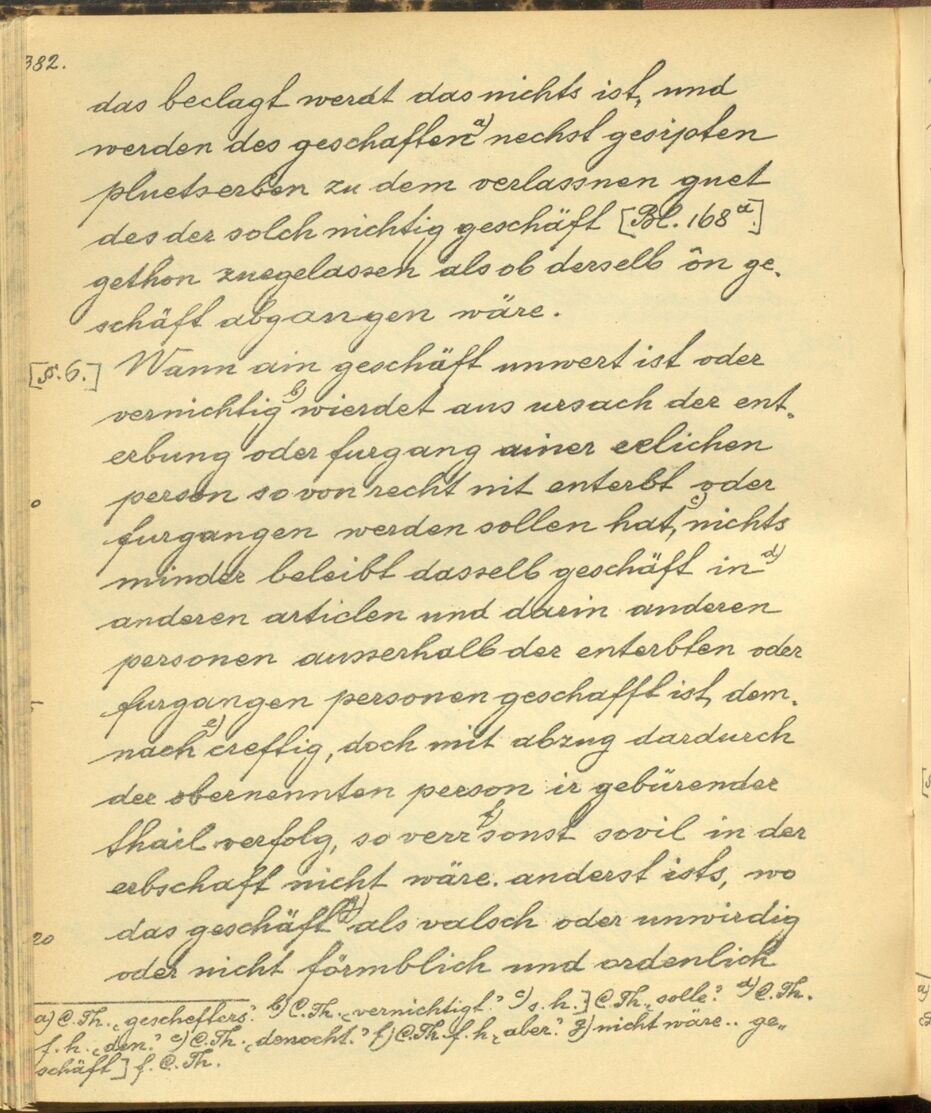 382.
das beclagt werdt das nichts ist, und
werden des geschaften a) nechst gesipten
pluetserben zu dem verlassnen guet
des der solch nichtig geschäft [Bl. 168 a.]
gethon zuegelassen als ob derselb ôn ge-
schäft abgangen wäre.
[§. 6.] Wann ain geschäft unwert ist oder
vernichtig b) wierdet aus ursach der ent-
erbung oder furgang ainer eelichen
person so von recht nit enterbt oder
furgangen werden sollen hat, c) nichts
minder beleibt dasselb geschäft in d)
anderen articlen und darin anderen
personen ausserhalb der enterbten oder
furgangen personen geschafft ist, dem-
nach e) creftig, doch mit abzug dardurch
der obernennten person ir gebürender
thail verfolg, so verr f) sonst sovil in der
erbschaft nicht wäre. anderst ists, wo
das geschäft g) als valsch oder unwirdig
20
oder nicht förmblich und ordenlich
a) C. Th. „gescheffers“ b) C. Th. „vernichtigt“ c) s. h.] C Th. „solle“ d) C. Th.
f. h. „den“ e) C. Th. „denocht.“ f) C. Th. f. h. „aber“ g) nicht wäre.. ge-
schäft] f. C. Th.